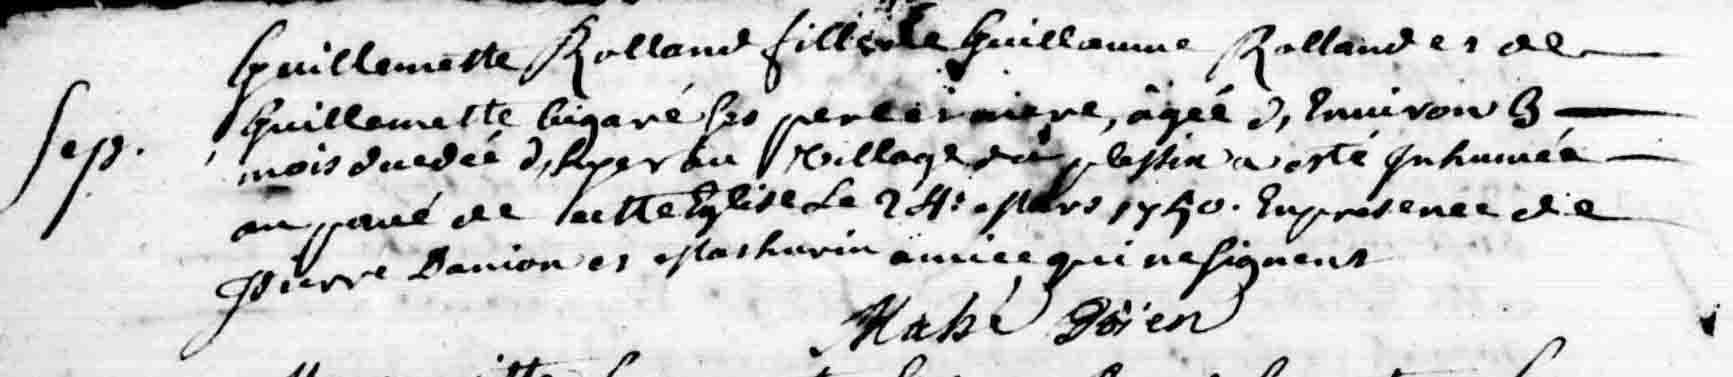 Guillemette Rolland fille de Guillaume Rolland et de
Sep. Guillemette bigaré ses pere et mere, âgée d, Environ 3
mois decedée d, hyer au village du plessix a esté Inhumée
au pavé de cette Eglise Le 24: Mars 1740. En presence de
Pierre Danion et Mathurin amice, qui ne signent
Mahé Doïen